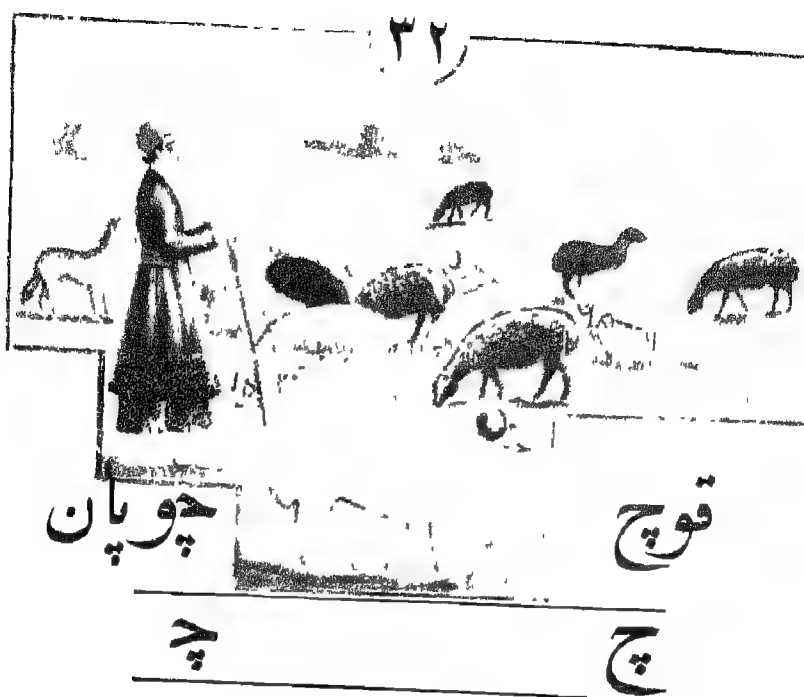 ۳۲
قوچ چوپان
چ چ